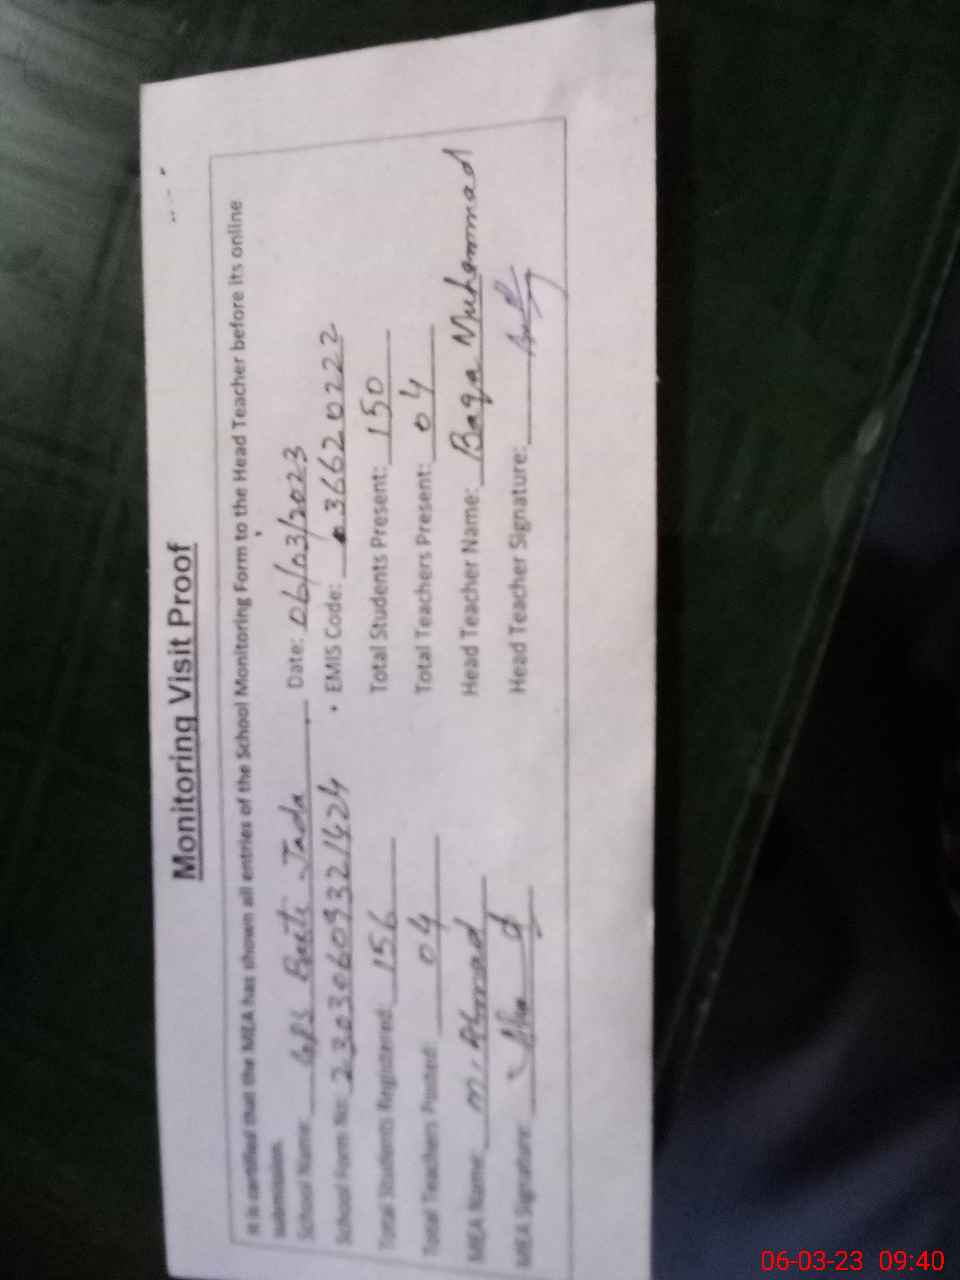 Monitoring Visit Proof
It is certified that the MEA has shown all entries of the School Monitoring Form to the Head Teacher before its online
submission.
School Name: GPS Basti Jada Date: 06/03/2023
School Form No: 23030609321424 EMIS Code: 36620222
Total Students Registered: 156 Total Students Present: 150
Total Teachers Posted: 04 Total Teachers Present: 04
MEA Name: M. Ahmad Head Teacher Name: Baqa Muhammad
MEA Signature: Head Teacher Signature:
06-03-23 09:40